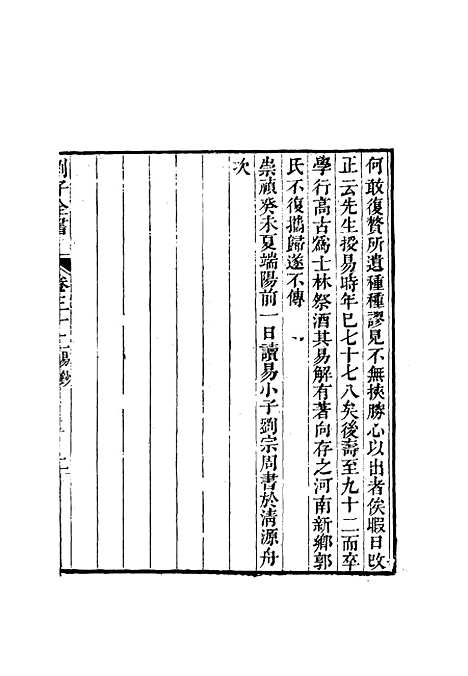 何敢復贅所遺種種謬見不無挾勝心以出者俟暇日改
正云先生授易時年已七十七八矣後壽至九十二而卒
學行高古爲士林祭酒其易解有著向存之河南新鄉郭
氏不復攜歸遂不傳
崇禎癸未夏端陽前一日讀易小子劉宗周書於清源舟
次
劉子全書